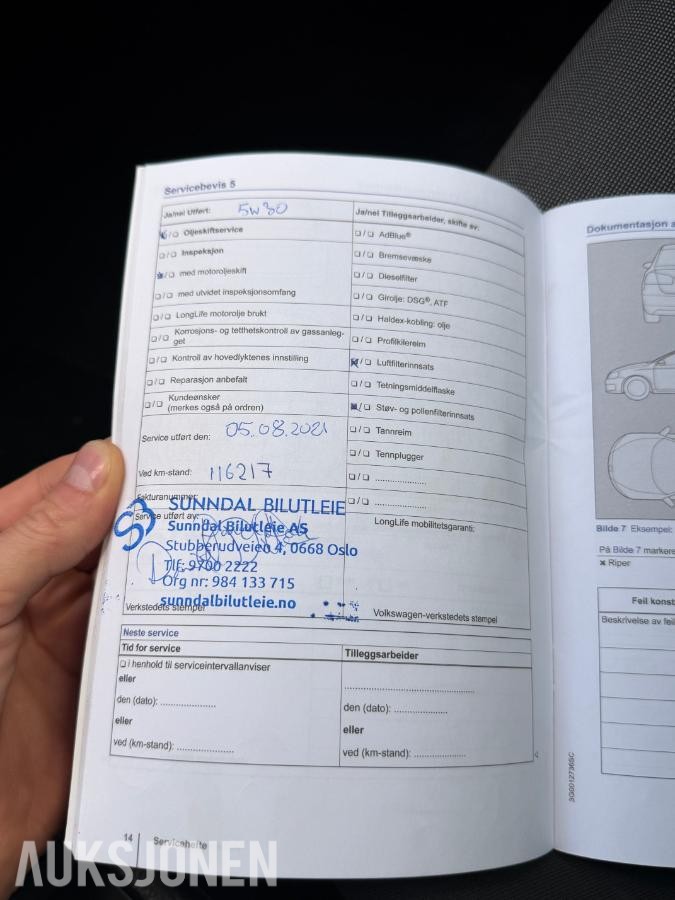 Servicebevis 5
Ja/nei Utført: 5W30
Oljeskiftservice
Inspeksjon
med motoroljeskift
med utvidet inspeksjonsomfang
LongLife motorolje brukt
Korrosjons- og tetthetskontroll av gassanleg-
get
Kontroll av hovedlyktenes innstilling
Reparasjon anbefalt
Kundeønsker
(merkes også på ordren)
Service utført den: 05.08.2021
Ved km-stand: 116217
Fakturanummer
Service utført av:
SUNNDAL BILUTLEIE
Sunndal Bilutleie AS
Stubberudveien 4, 0668 Oslo
Tlf: 9700 2222
Org nr: 984 133 715
sunndalbilutleie.no
Verkstedets stempel
Ja/nei Tilleggsarbeider, skifte av:
AdBlue®
Bremsevæske
Dieselfilter
Girolje: DSG®, ATF
Haldex-kobling: olje
Profilkilereim
Luftfilterinnsats
Tetningsmiddelflaske
Støv- og pollenfilterinnsats
Tannreim
Tennplugger
LongLife mobilitetsgaranti:
Volkswagen-verkstedets stempel
Neste service
Tid for service
i henhold til serviceintervallanviser
eller
den (dato): ....................
eller
ved (km-stand): ....................
Tilleggsarbeider
den (dato): ....................
eller
ved (km-stand): ....................
14 Servicehefte
Dokumentasjon a
Bilde 7 Eksempel:
På Bilde 7 markere
× Riper
Feil konst
Beskrivelse av feil
3G0012736SC
AUKSJONEN